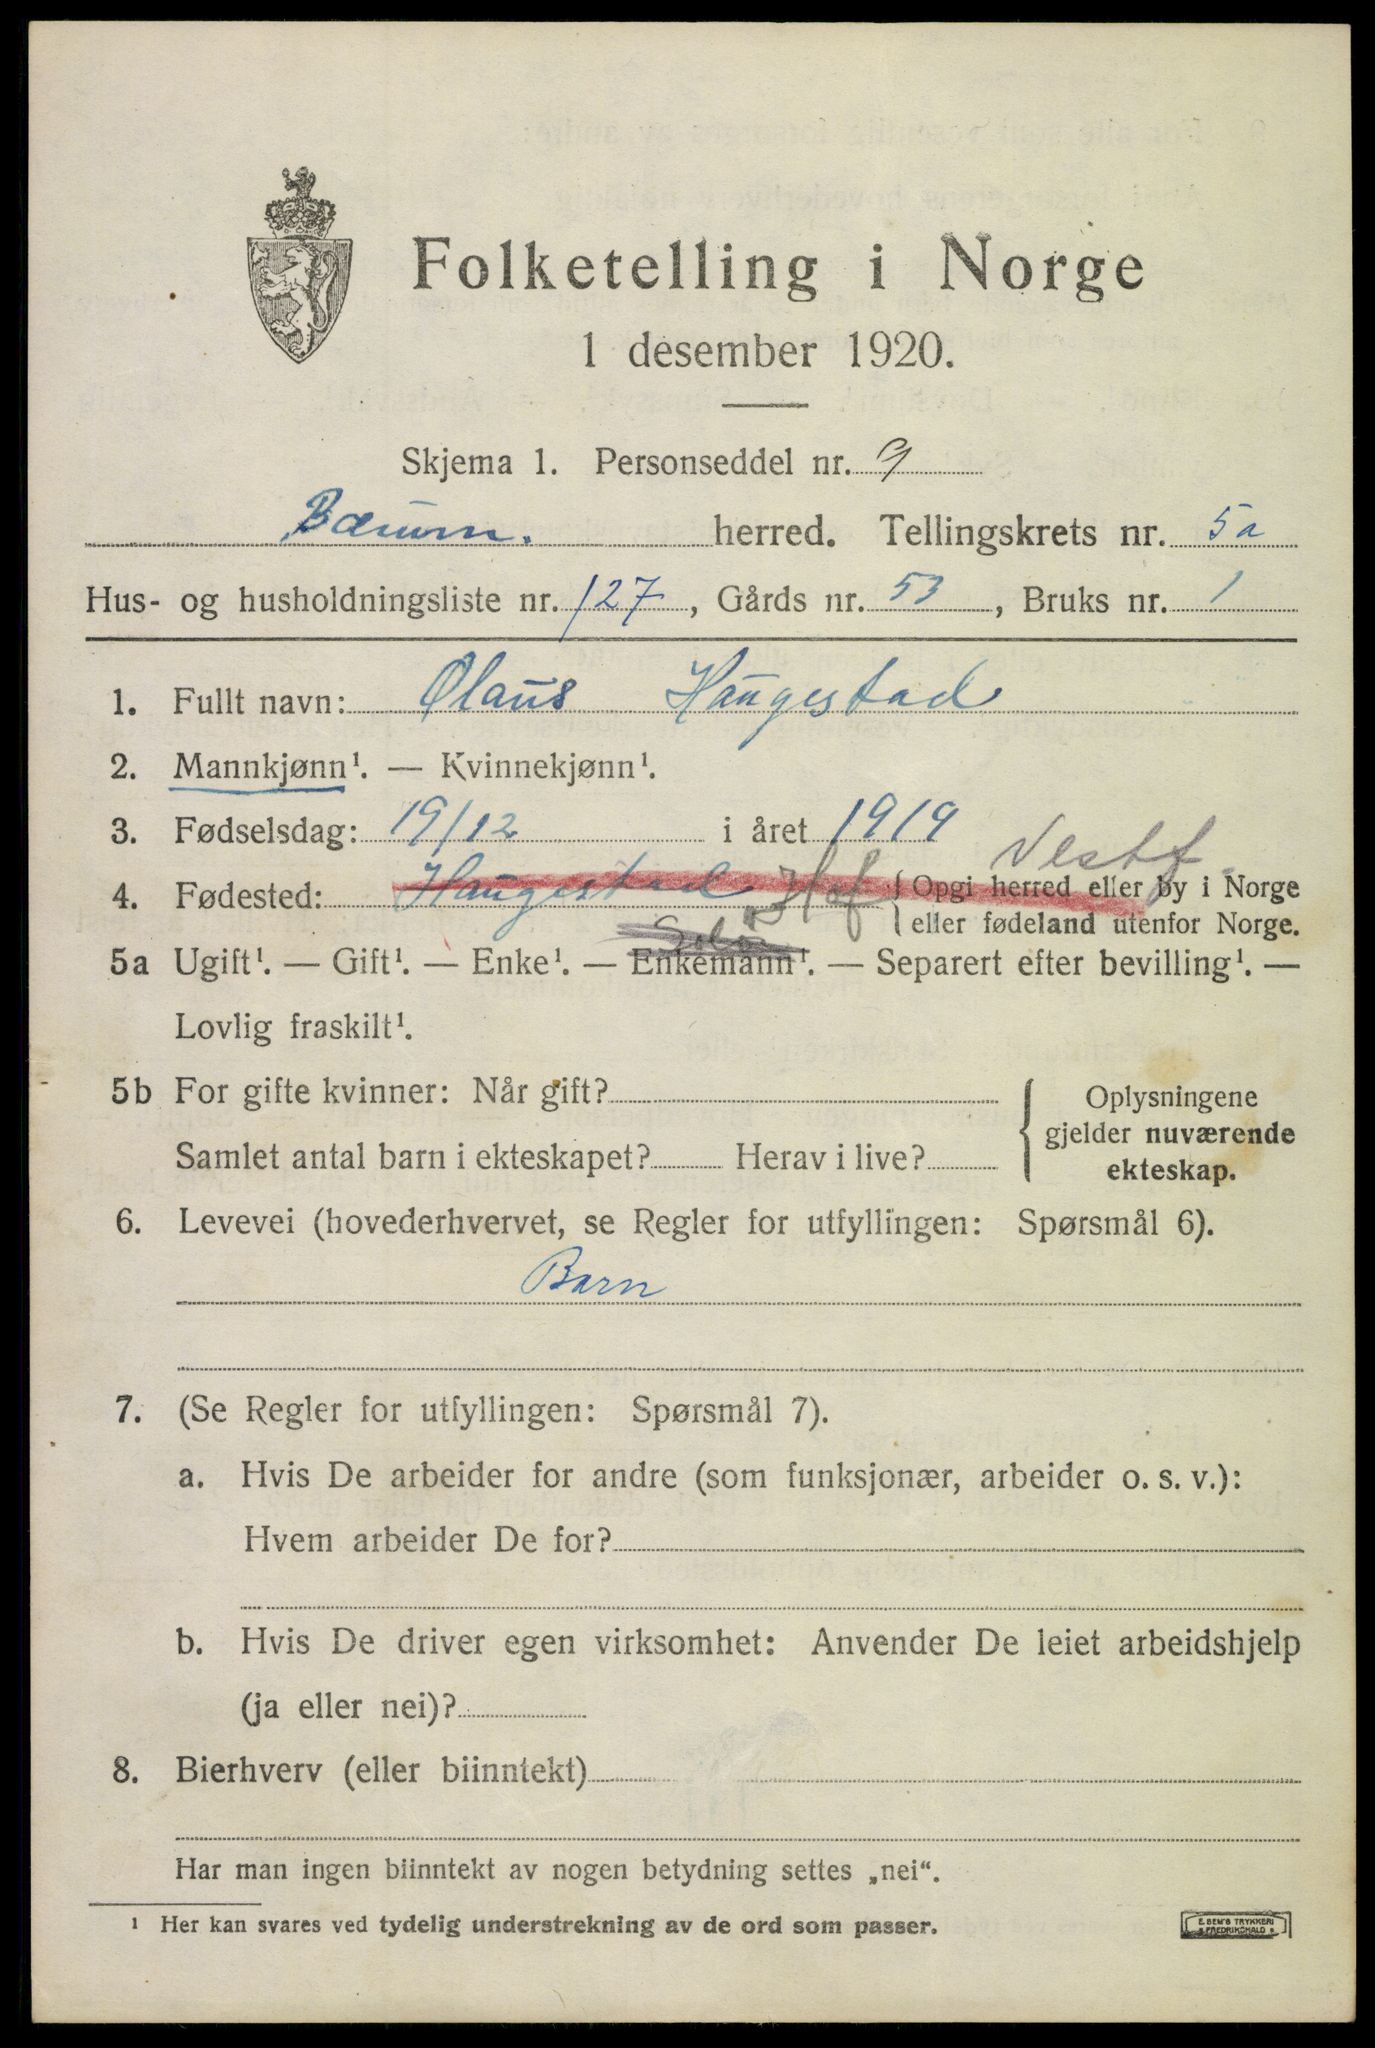 Folketelling i Norge
1 desember 1920.
Skjema 1. Personseddel nr. 9
Bærum. herred. Tellingskrets nr. 5a
Hus- og husholdningsliste nr. 127, Gårds nr. 53, Bruks nr. 1
1. Fullt navn: Olaus Haugestad
2. Mannkjønn¹. — Kvinnekjønn¹.
3. Fødselsdag: 19/12 i året 1919
Vestf.
4. Fødested: Haugestad Hof { Opgi herred eller by i Norge
eller fødeland utenfor Norge.
Solør
5a Ugift¹. — Gift¹. — Enke¹. — Enkemann¹. — Separert efter bevilling¹. —
Lovlig fraskilt¹.
5b For gifte kvinner: Når gift?
Samlet antal barn i ekteskapet? Herav i live?
{ Oplysningene
gjelder nuværende
ekteskap.
6. Levevei (hovederhvervet, se Regler for utfyllingen: Spørsmål 6).
Barn
7. (Se Regler for utfyllingen: Spørsmål 7).
a. Hvis De arbeider for andre (som funksjonær, arbeider o. s. v.):
Hvem arbeider De for?
b. Hvis De driver egen virksomhet: Anvender De leiet arbeidshjelp
(ja eller nei)?
8. Bierhverv (eller biinntekt)
Har man ingen biinntekt av nogen betydning settes „nei“.
¹ Her kan svares ved tydelig understrekning av de ord som passer.
E. SEM'S TRYKKERI
FREDRIKSHALD